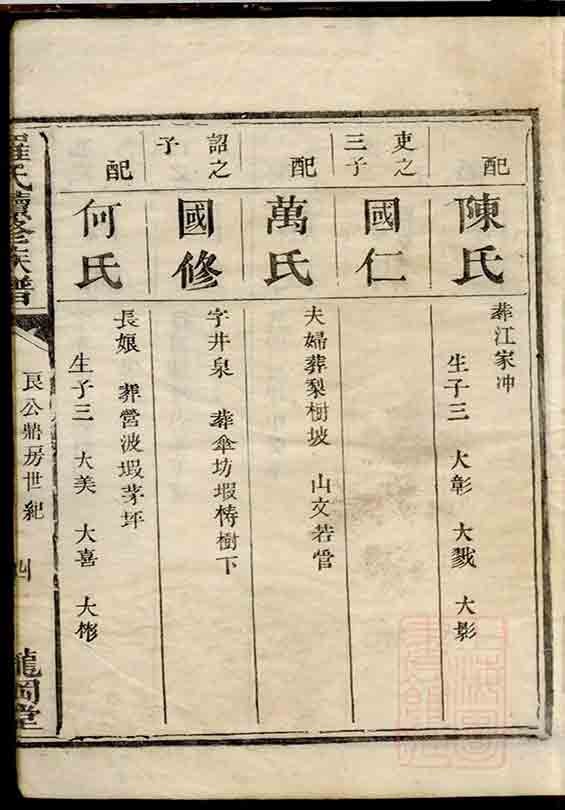 配
陳氏
葬江家冲
生子三 大彰 大戮 大影
吏之三子
國仁
配
萬氏
夫婦葬梨樹坡 山文若管
詔之子
國修
字井泉 葬傘坊塅梼樹下
配
何氏
長娘 葬營波塅茅坪
生子三 大美 大喜 大彬
羅氏續修族譜
良公鼎房世紀
四
龍岡堂